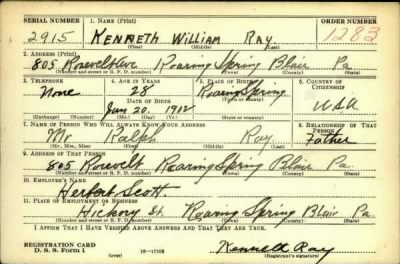 SERIAL NUMBER 1. NAME (Print) ORDER NUMBER
2915 KENNETH WILLIAM RAY 1283
(First) (Middle) (Last)
2. ADDRESS (Print)
805 Rosevelt Ave Roaring Spring Blair Pa
(Number and street or R. F. D. number) (Town) (County) (State)
3. TELEPHONE 4. AGE IN YEARS 5. PLACE OF BIRTH 6. COUNTRY OF CITIZENSHIP
None 28 Roaring Spring
DATE OF BIRTH
Jan 20. 1912 USA
(Exchange) (Number) (Mo.) (Day) (Yr.) (State or country)
7. NAME OF PERSON WHO WILL ALWAYS KNOW YOUR ADDRESS 8. RELATIONSHIP OF THAT PERSON
Mr. Ralph Ray Father
(Mr., Mrs., Miss) (First) (Middle) (Last)
9. ADDRESS OF THAT PERSON
805 Rosevelt Roaring Spring Blair Pa.
(Number and street or R. F. D. number) (Town) (County) (State)
10. EMPLOYER'S NAME
Herbert Scott
11. PLACE OF EMPLOYMENT OR BUSINESS
Hickory St. Roaring Spring Blair Pa.
(Number and street or R. F. D. number) (Town) (County) (State)
I AFFIRM THAT I HAVE VERIFIED ABOVE ANSWERS AND THAT THEY ARE TRUE.
REGISTRATION CARD
D. S. S. Form 1 16—17105 Kenneth Ray
(over) (Registrant's signature)